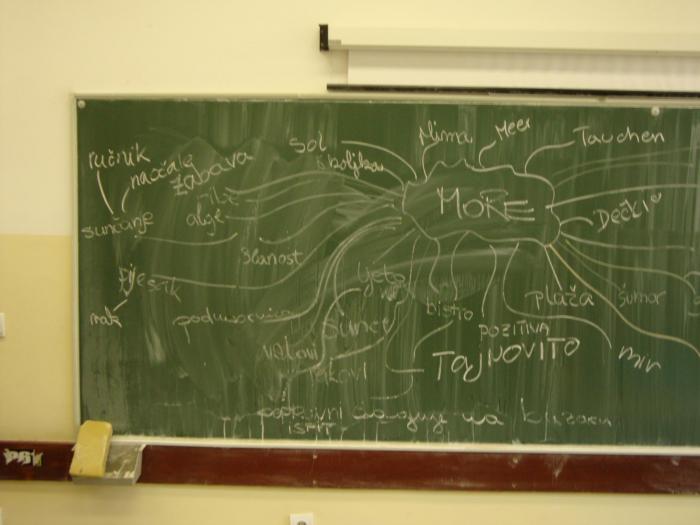 sol
Klima
Meer
Tauchen
ručnik
naočale
zabava
školjka
MORE
alge
Dečki
sunčanje
slanost
ljeto
pijesak
plaža
šumor
rak
podmornica
sunce
bistro
POZITIVA
valovi
TAJNOVITO
mir
popravni
ISPIT